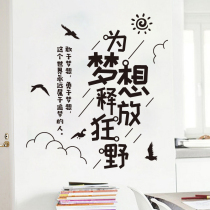 为梦想
释放
狂野
敢于梦想，勇于梦想，
这个世界永远属于追梦的人。